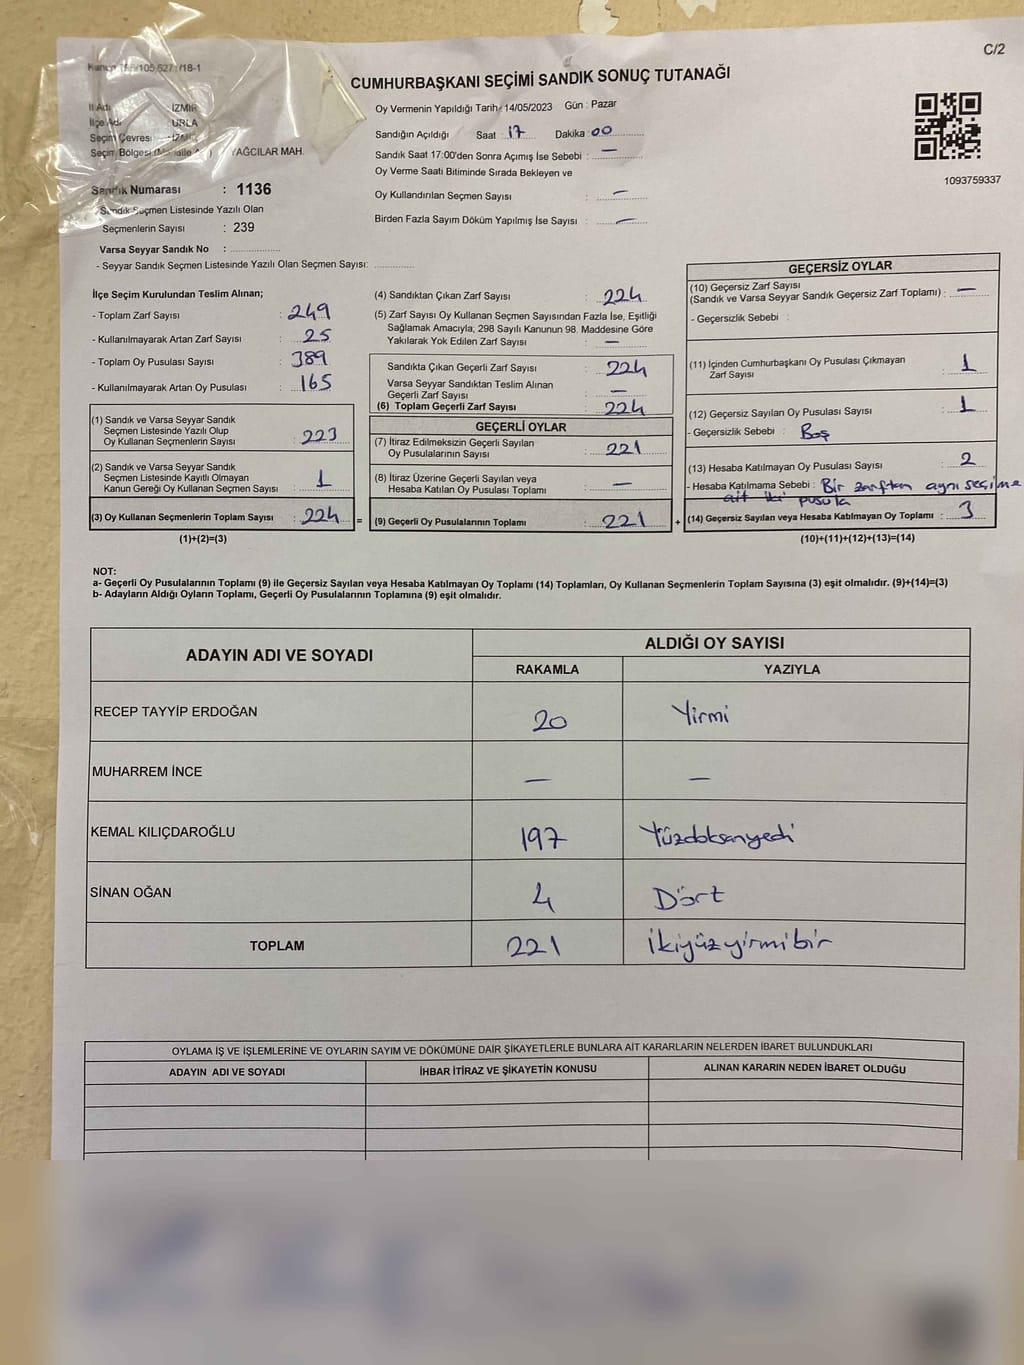 C/2
CUMHURBAŞKANI SEÇİMİ SANDIK SONUÇ TUTANAĞI
İl Adı : İZMİR
İlçe Adı : URLA
Seçim Çevresi : İZMİR
Seçim Bölgesi YAĞCILAR MAH.
Sandık Numarası : 1136
Sandık Seçmen Listesinde Yazılı Olan
Seçmenlerin Sayısı : 239
Varsa Seyyar Sandık No :
- Seyyar Sandık Seçmen Listesinde Yazılı Olan Seçmen Sayısı:
Oy Vermenin Yapıldığı Tarih: 14/05/2023 Gün : Pazar
Sandığın Açıldığı Saat : 17 Dakika : 00
Sandık Saat 17:00'den Sonra Açımış İse Sebebi : —
Oy Verme Saati Bitiminde Sırada Bekleyen ve
Oy Kullandırılan Seçmen Sayısı : —
Birden Fazla Sayım Döküm Yapılmış İse Sayısı : —
1093759337
İlçe Seçim Kurulundan Teslim Alınan;
- Toplam Zarf Sayısı : 249
- Kullanılmayarak Artan Zarf Sayısı : 25
- Toplam Oy Pusulası Sayısı : 389
- Kullanılmayarak Artan Oy Pusulası : 165
(1) Sandık ve Varsa Seyyar Sandık
Seçmen Listesinde Yazılı Olup
Oy Kullanan Seçmenlerin Sayısı : 223
(2) Sandık ve Varsa Seyyar Sandık
Seçmen Listesinde Kayıtlı Olmayan
Kanun Gereği Oy Kullanan Seçmen Sayısı : 1
(3) Oy Kullanan Seçmenlerin Toplam Sayısı : 224 =
(1)+(2)=(3)
(4) Sandıktan Çıkan Zarf Sayısı : 224
(5) Zarf Sayısı Oy Kullanan Seçmen Sayısından Fazla İse, Eşitliği
Sağlamak Amacıyla, 298 Sayılı Kanunun 98. Maddesine Göre
Yakılarak Yok Edilen Zarf Sayısı : —
Sandıkta Çıkan Geçerli Zarf Sayısı : 224
Varsa Seyyar Sandıktan Teslim Alınan
Geçerli Zarf Sayısı : —
(6) Toplam Geçerli Zarf Sayısı : 224
GEÇERLİ OYLAR
(7) İtiraz Edilmeksizin Geçerli Sayılan
Oy Pusulalarının Sayısı : 221
(8) İtiraz Üzerine Geçerli Sayılan veya
Hesaba Katılan Oy Pusulası Toplamı : —
(9) Geçerli Oy Pusulalarının Toplamı : 221 +
GEÇERSİZ OYLAR
(10) Geçersiz Zarf Sayısı
(Sandık ve Varsa Seyyar Sandık Geçersiz Zarf Toplamı) : —
- Geçersizlik Sebebi :
(11) İçinden Cumhurbaşkanı Oy Pusulası Çıkmayan
Zarf Sayısı : 1
(12) Geçersiz Sayılan Oy Pusulası Sayısı : 1
- Geçersizlik Sebebi : Boş
(13) Hesaba Katılmayan Oy Pusulası Sayısı : 2
- Hesaba Katılmama Sebebi : Bir zarftan aynı seçime
ait iki pusula
(14) Geçersiz Sayılan veya Hesaba Katılmayan Oy Toplamı : 3
(10)+(11)+(12)+(13)=(14)
NOT:
a- Geçerli Oy Pusulalarının Toplamı (9) ile Geçersiz Sayılan veya Hesaba Katılmayan Oy Toplamı (14) Toplamları, Oy Kullanan Seçmenlerin Toplam Sayısına (3) eşit olmalıdır. (9)+(14)=(3)
b- Adayların Aldığı Oyların Toplamı, Geçerli Oy Pusulalarının Toplamına (9) eşit olmalıdır.
ADAYIN ADI VE SOYADI ALDIĞI OY SAYISI
RAKAMLA YAZIYLA
RECEP TAYYİP ERDOĞAN 20 Yirmi
MUHARREM İNCE — —
KEMAL KILIÇDAROĞLU 197 Yüzdoksanyedi
SİNAN OĞAN 4 Dört
TOPLAM 221 İkiyüzyirmibir
OYLAMA İŞ VE İŞLEMLERİNE VE OYLARIN SAYIM VE DÖKÜMÜNE DAİR ŞİKAYETLERLE BUNLARA AİT KARARLARIN NELERDEN İBARET BULUNDUKLARI
ADAYIN ADI VE SOYADI İHBAR İTİRAZ VE ŞİKAYETİN KONUSU ALINAN KARARIN NEDEN İBARET OLDUĞU